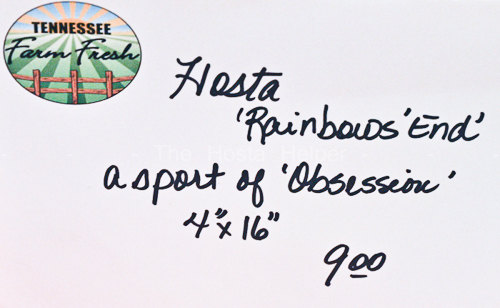 TENNESSEE
Farm Fresh
Hosta
'Rainbows' End'
- The Hosta Helper -
a sport of 'Obsession'
4"x 16"
9.00